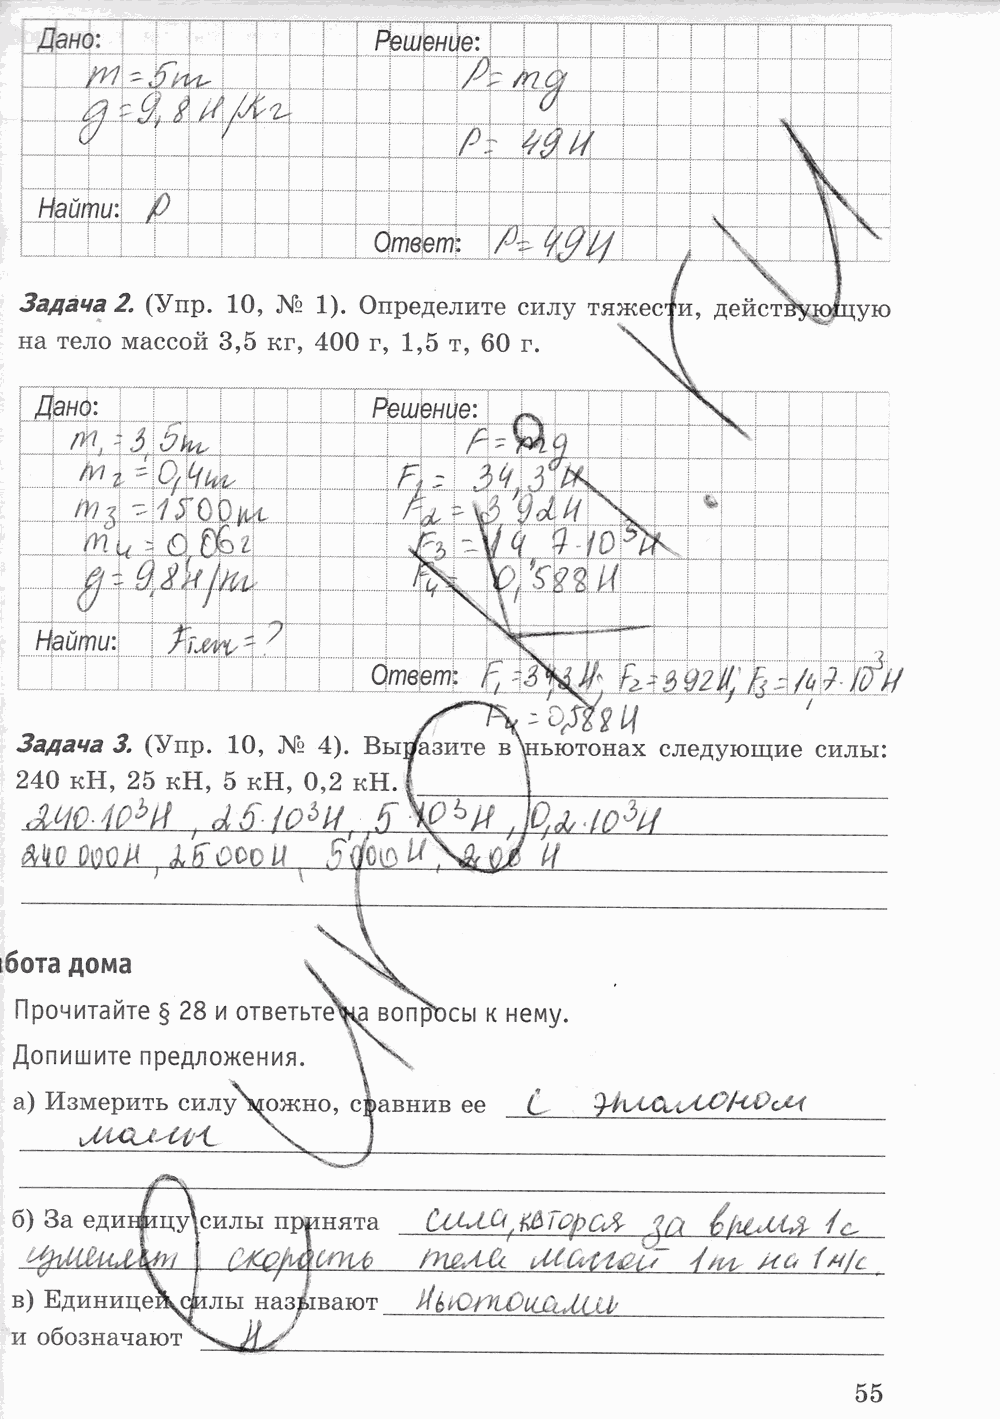 Дано:
Решение:
m = 5m
P = mg
g = 9,8 Н/кг
P = 49 Н
Найти: P
Ответ: P = 49 Н
Задача 2. (Упр. 10, № 1). Определите силу тяжести, действующую
на тело массой 3,5 кг, 400 г, 1,5 т, 60 г.
Дано:
Решение:
m₁ = 3,5m
F = mg
m₂ = 0,4m
F₁ = 34,3 Н
m₃ = 1500m
F₂ = 3,92 Н
m₄ = 0,06г
F₃ = 14,7·10³ Н
g = 9,8 Н/m
F₄ = 0,588 Н
Найти: Fтяж = ?
Ответ: F₁ = 34,3 Н; F₂ = 3,92 Н; F₃ = 14,7·10³ Н
F₄ = 0,588 Н
Задача 3. (Упр. 10, № 4). Выразите в ньютонах следующие силы:
240 кН, 25 кН, 5 кН, 0,2 кН.
240·10³ Н, 25·10³ Н, 5·10³ Н, 0,2·10³ Н
240 000 Н, 25 000 Н, 5000 Н, 200 Н
абота дома
Прочитайте § 28 и ответьте на вопросы к нему.
Допишите предложения.
а) Измерить силу можно, сравнив ее с эталоном
силы
б) За единицу силы принята сила, которая за время 1с
изменяет скорость тела массой 1m на 1м/с.
в) Единицей силы называют Ньютонами
и обозначают Н
55